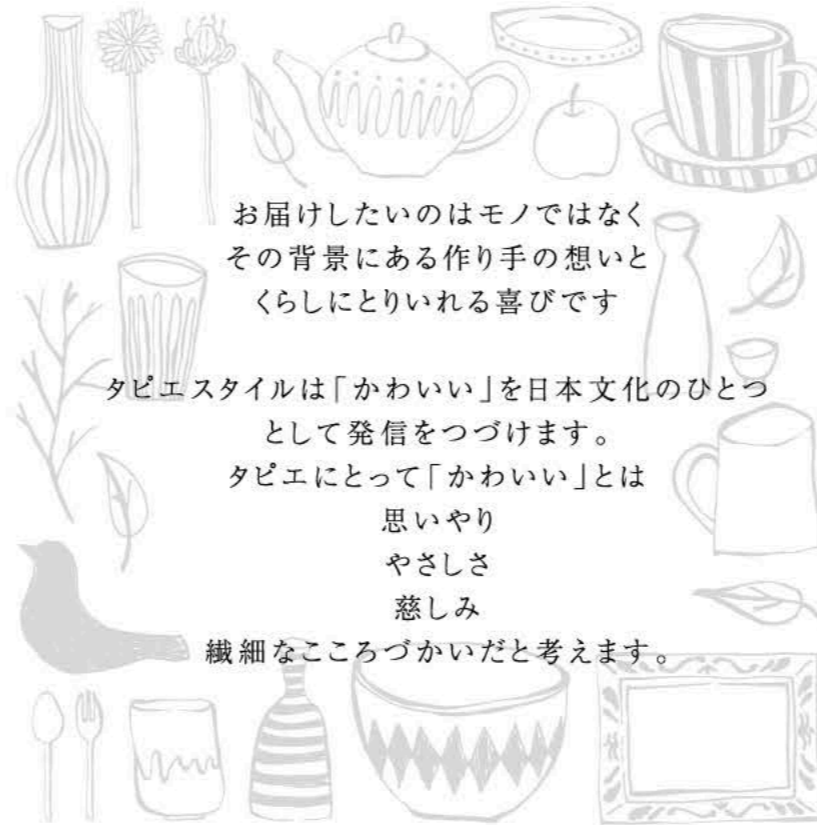 お届けしたいのはモノではなく
その背景にある作り手の想いと
くらしにとりいれる喜びです
タピエスタイルは「かわいい」を日本文化のひとつ
として発信をつづけます。
タピエにとって「かわいい」とは
思いやり
やさしさ
慈しみ
繊細なこころづかいだと考えます。